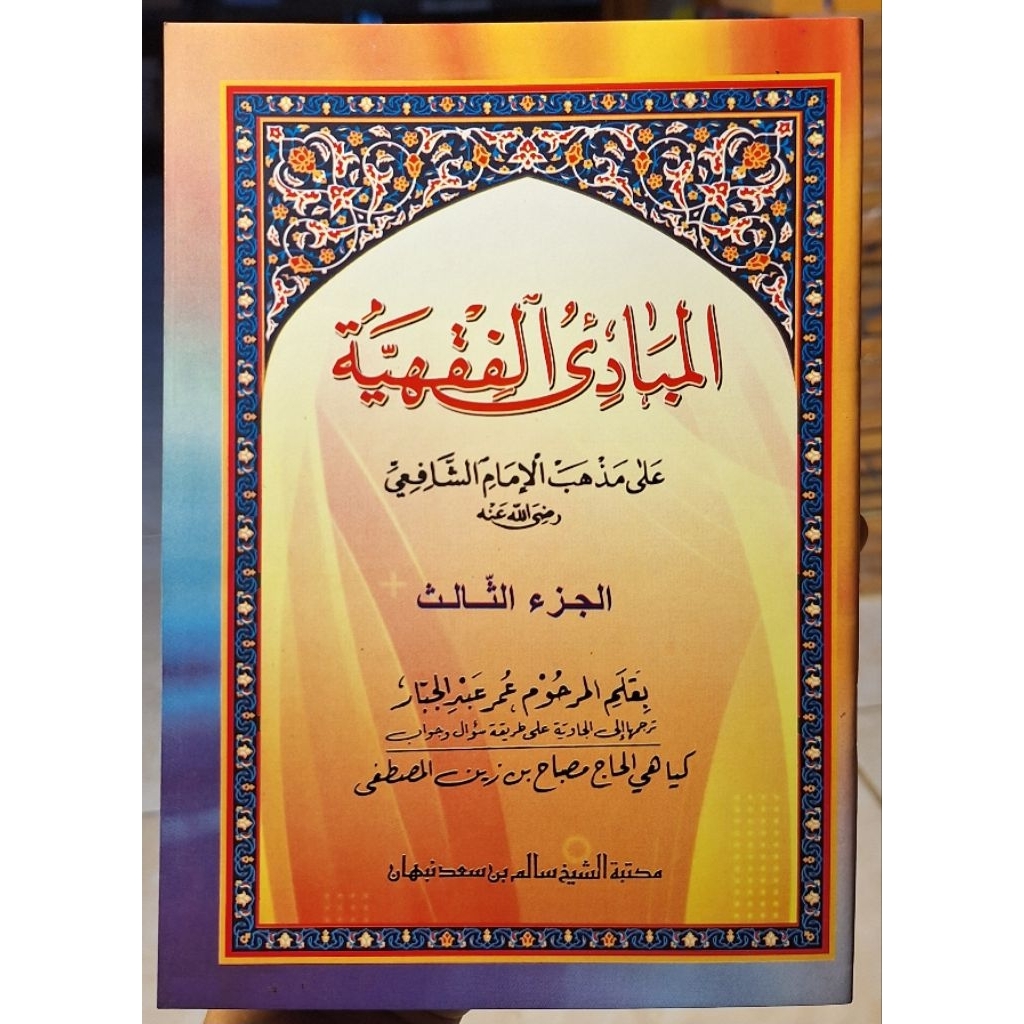 المَبَادِئُ الفِقْهِيَّة
عَلَى مَذْهَبِ الإِمَامِ الشَّافِعِيِّ
رَضِيَ اللّٰه عَنْه
الجزء الثّالث
بِقَلَمِ المرحُوْم عُمر عَبْدِ الجَبَّار
ترجمها إلى الجاوية على طريقة سؤال وجواب
كياهي الحاج مصباح بن زين المصطفى
مكتبة الشيخ سالم بن سعد نبهان